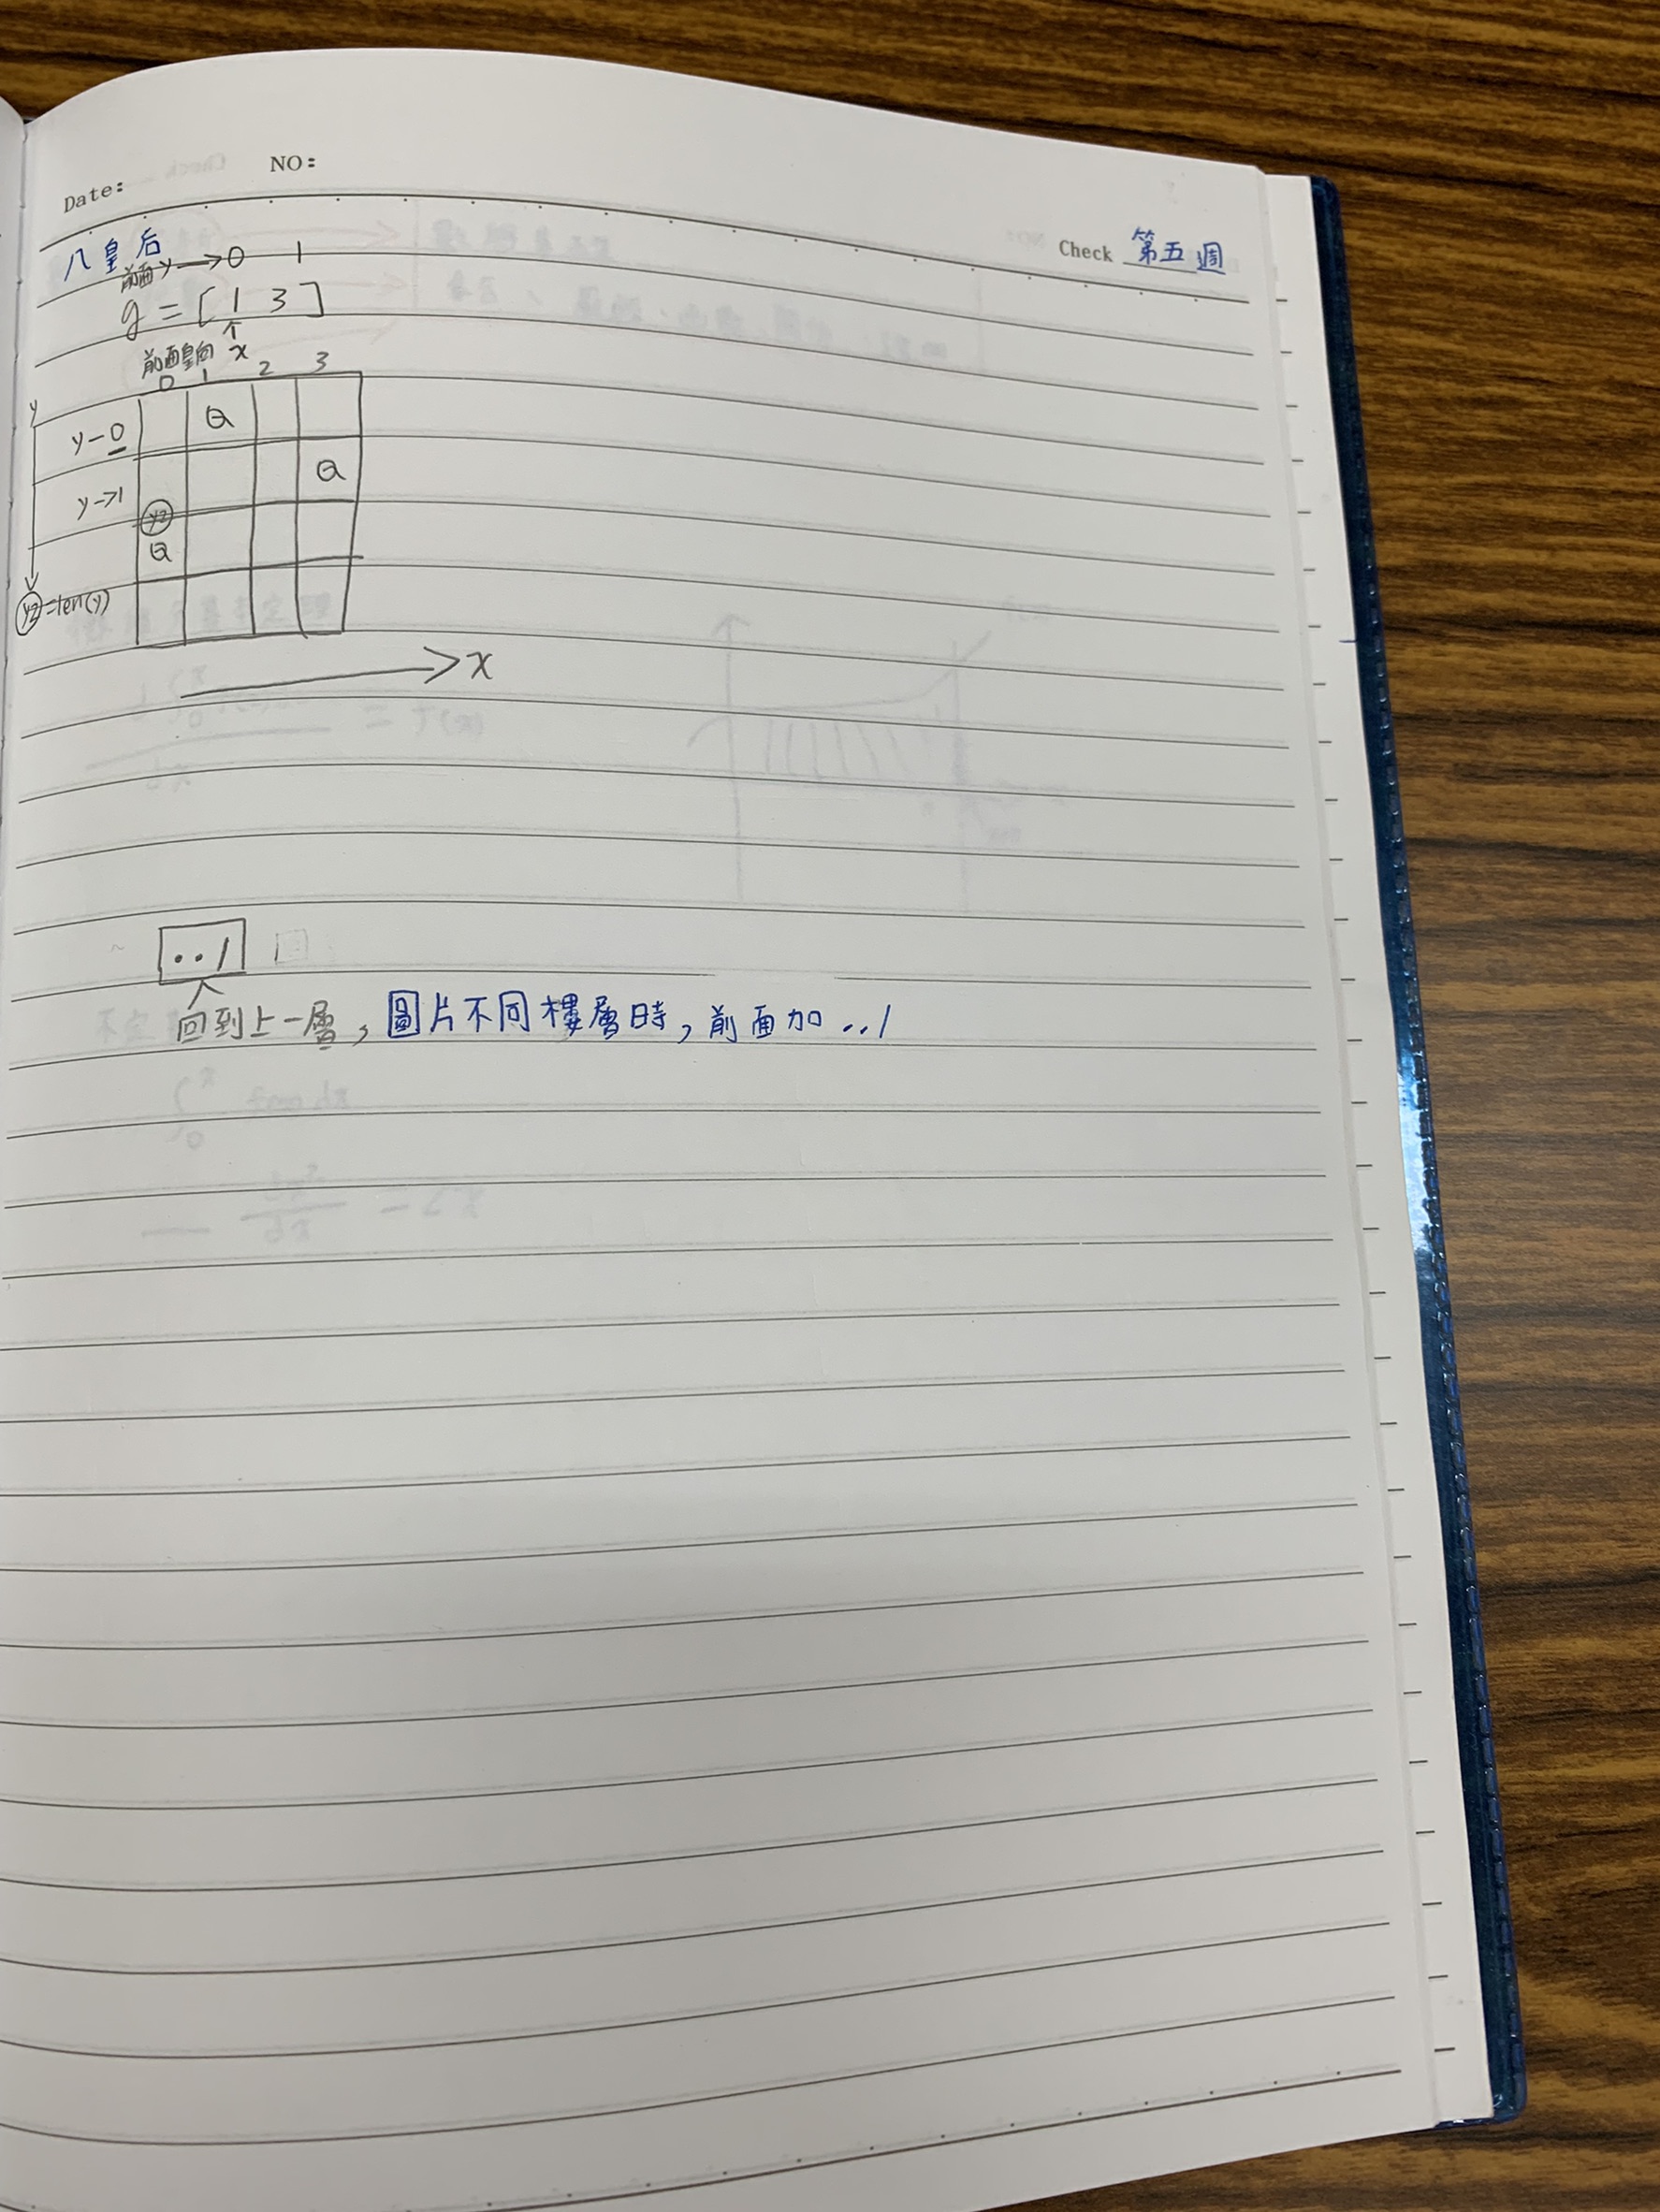 Date: NO:
Check 第五週
八皇后
前面y→0 1
g=[1 3]
↑
前面皇向 x
0 1 2 3
y
y-0 Q
y->1 Q
y2
Q
y2=len(y)
x
../
回到上一層,圖片不同樓層時,前面加../